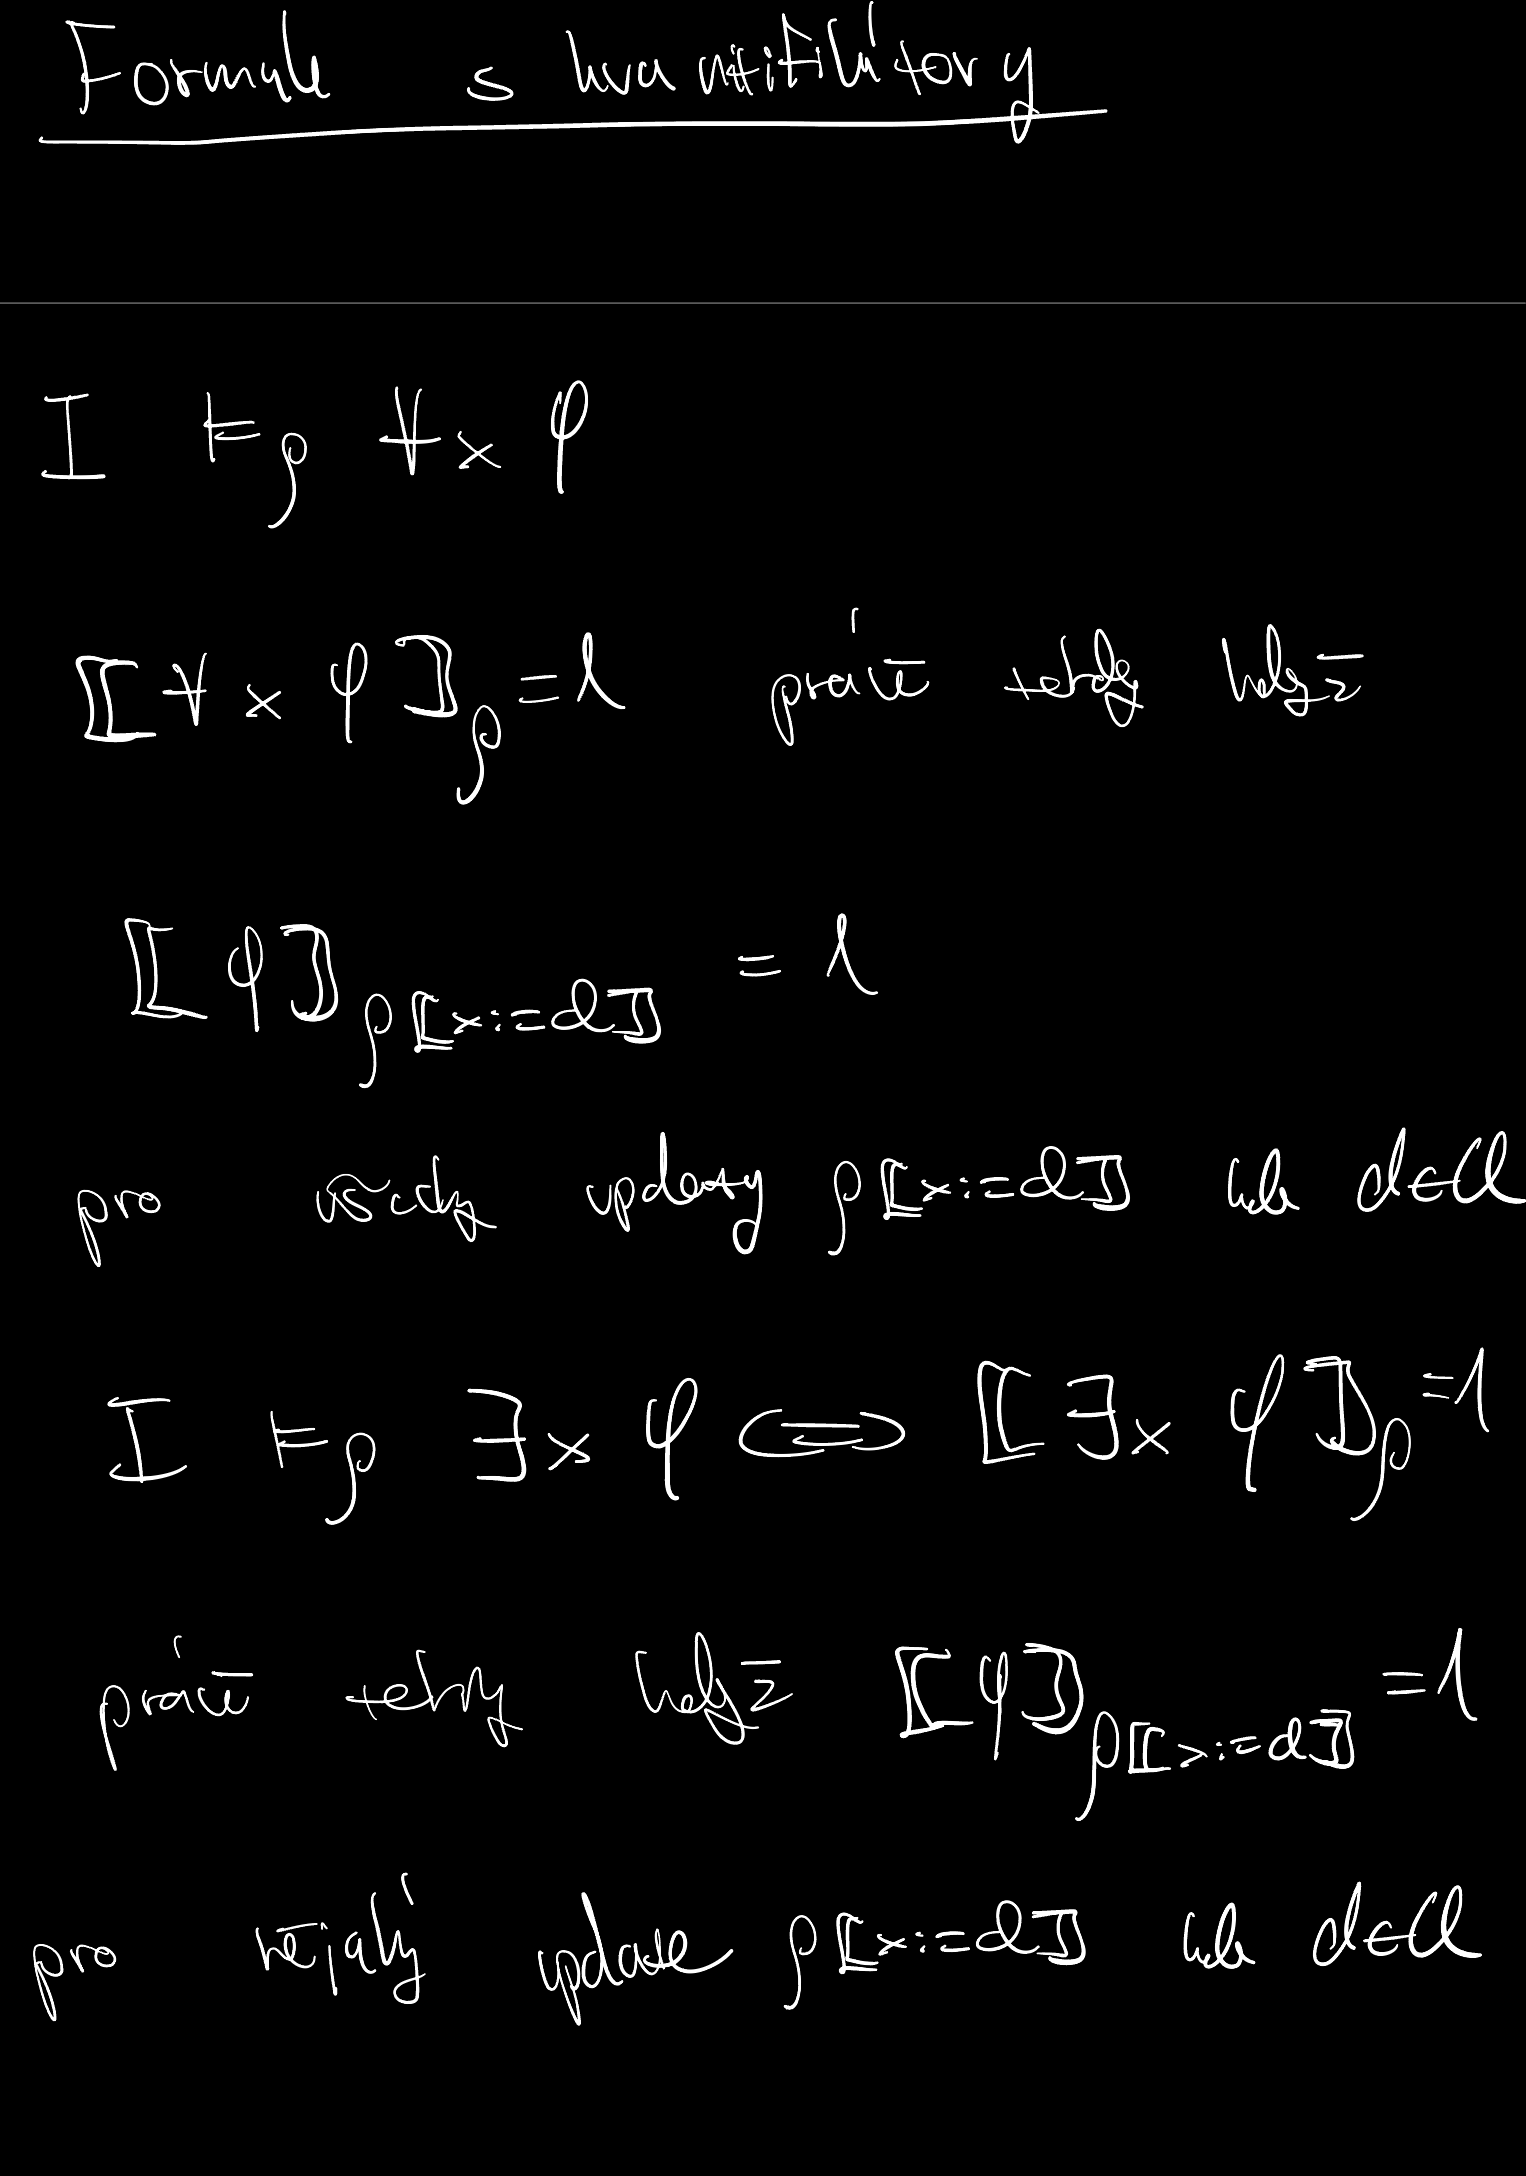 Formule s kvantifikátory
I ⊨ρ ∀x φ
⟦∀x φ⟧ρ = 1 právě tehdy když
⟦φ⟧ρ⟦x:=d⟧ = 1
pro všechy updaty ρ⟦x:=d⟧ kde d∈U
I ⊨ρ ∃x φ ⟺ ⟦∃x φ⟧ρ = 1
právě tehdy když ⟦φ⟧ρ⟦x:=d⟧ = 1
pro nějaký update ρ⟦x:=d⟧ kde d∈U